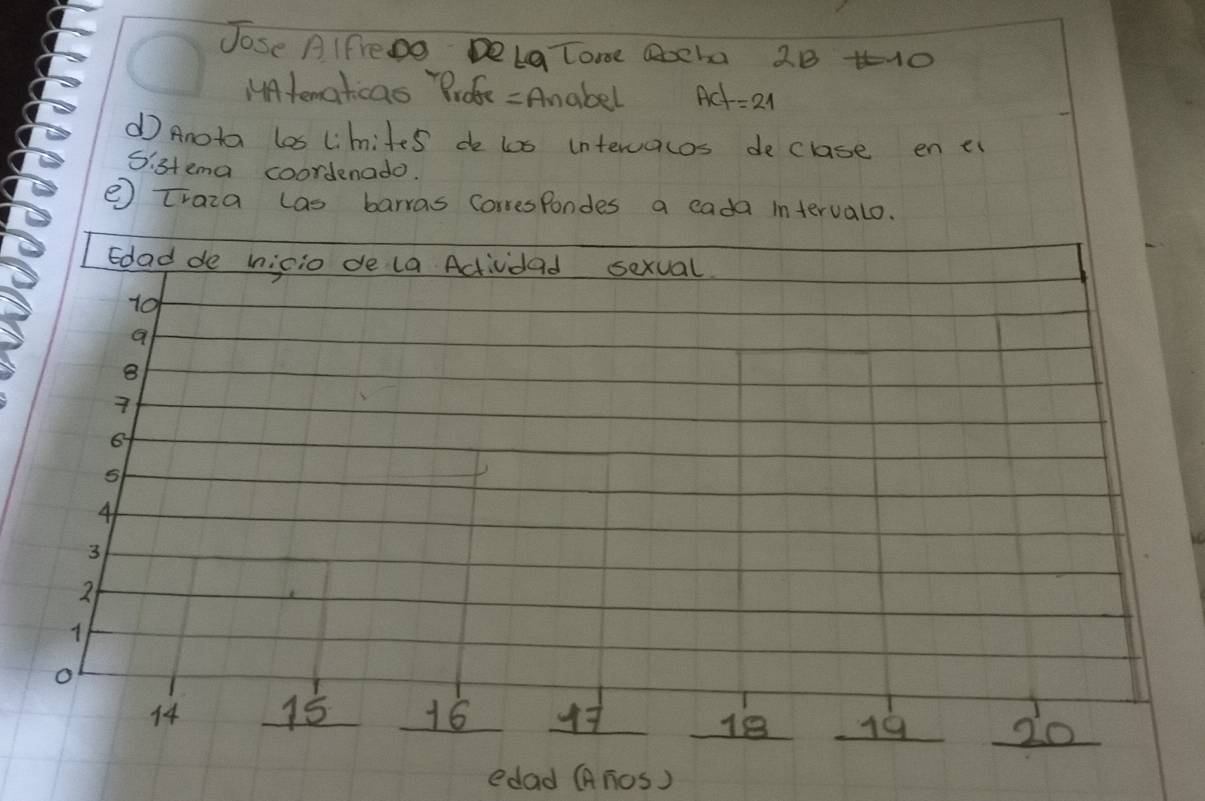 Jose Alfredo De La Torre Rocha 2B #10
MAtematicas Profe = Anabel Act = 21
d) Anota los limites de los intervalos de clase en el
Sistema coordenado.
e) Traza las barras Correspondes a cada intervalo.
Edad de inicio de la Actividad sexual
10
9
8
7
6
5
4
3
2
1
0
14 15 16 17 18 19 20
edad (Años)